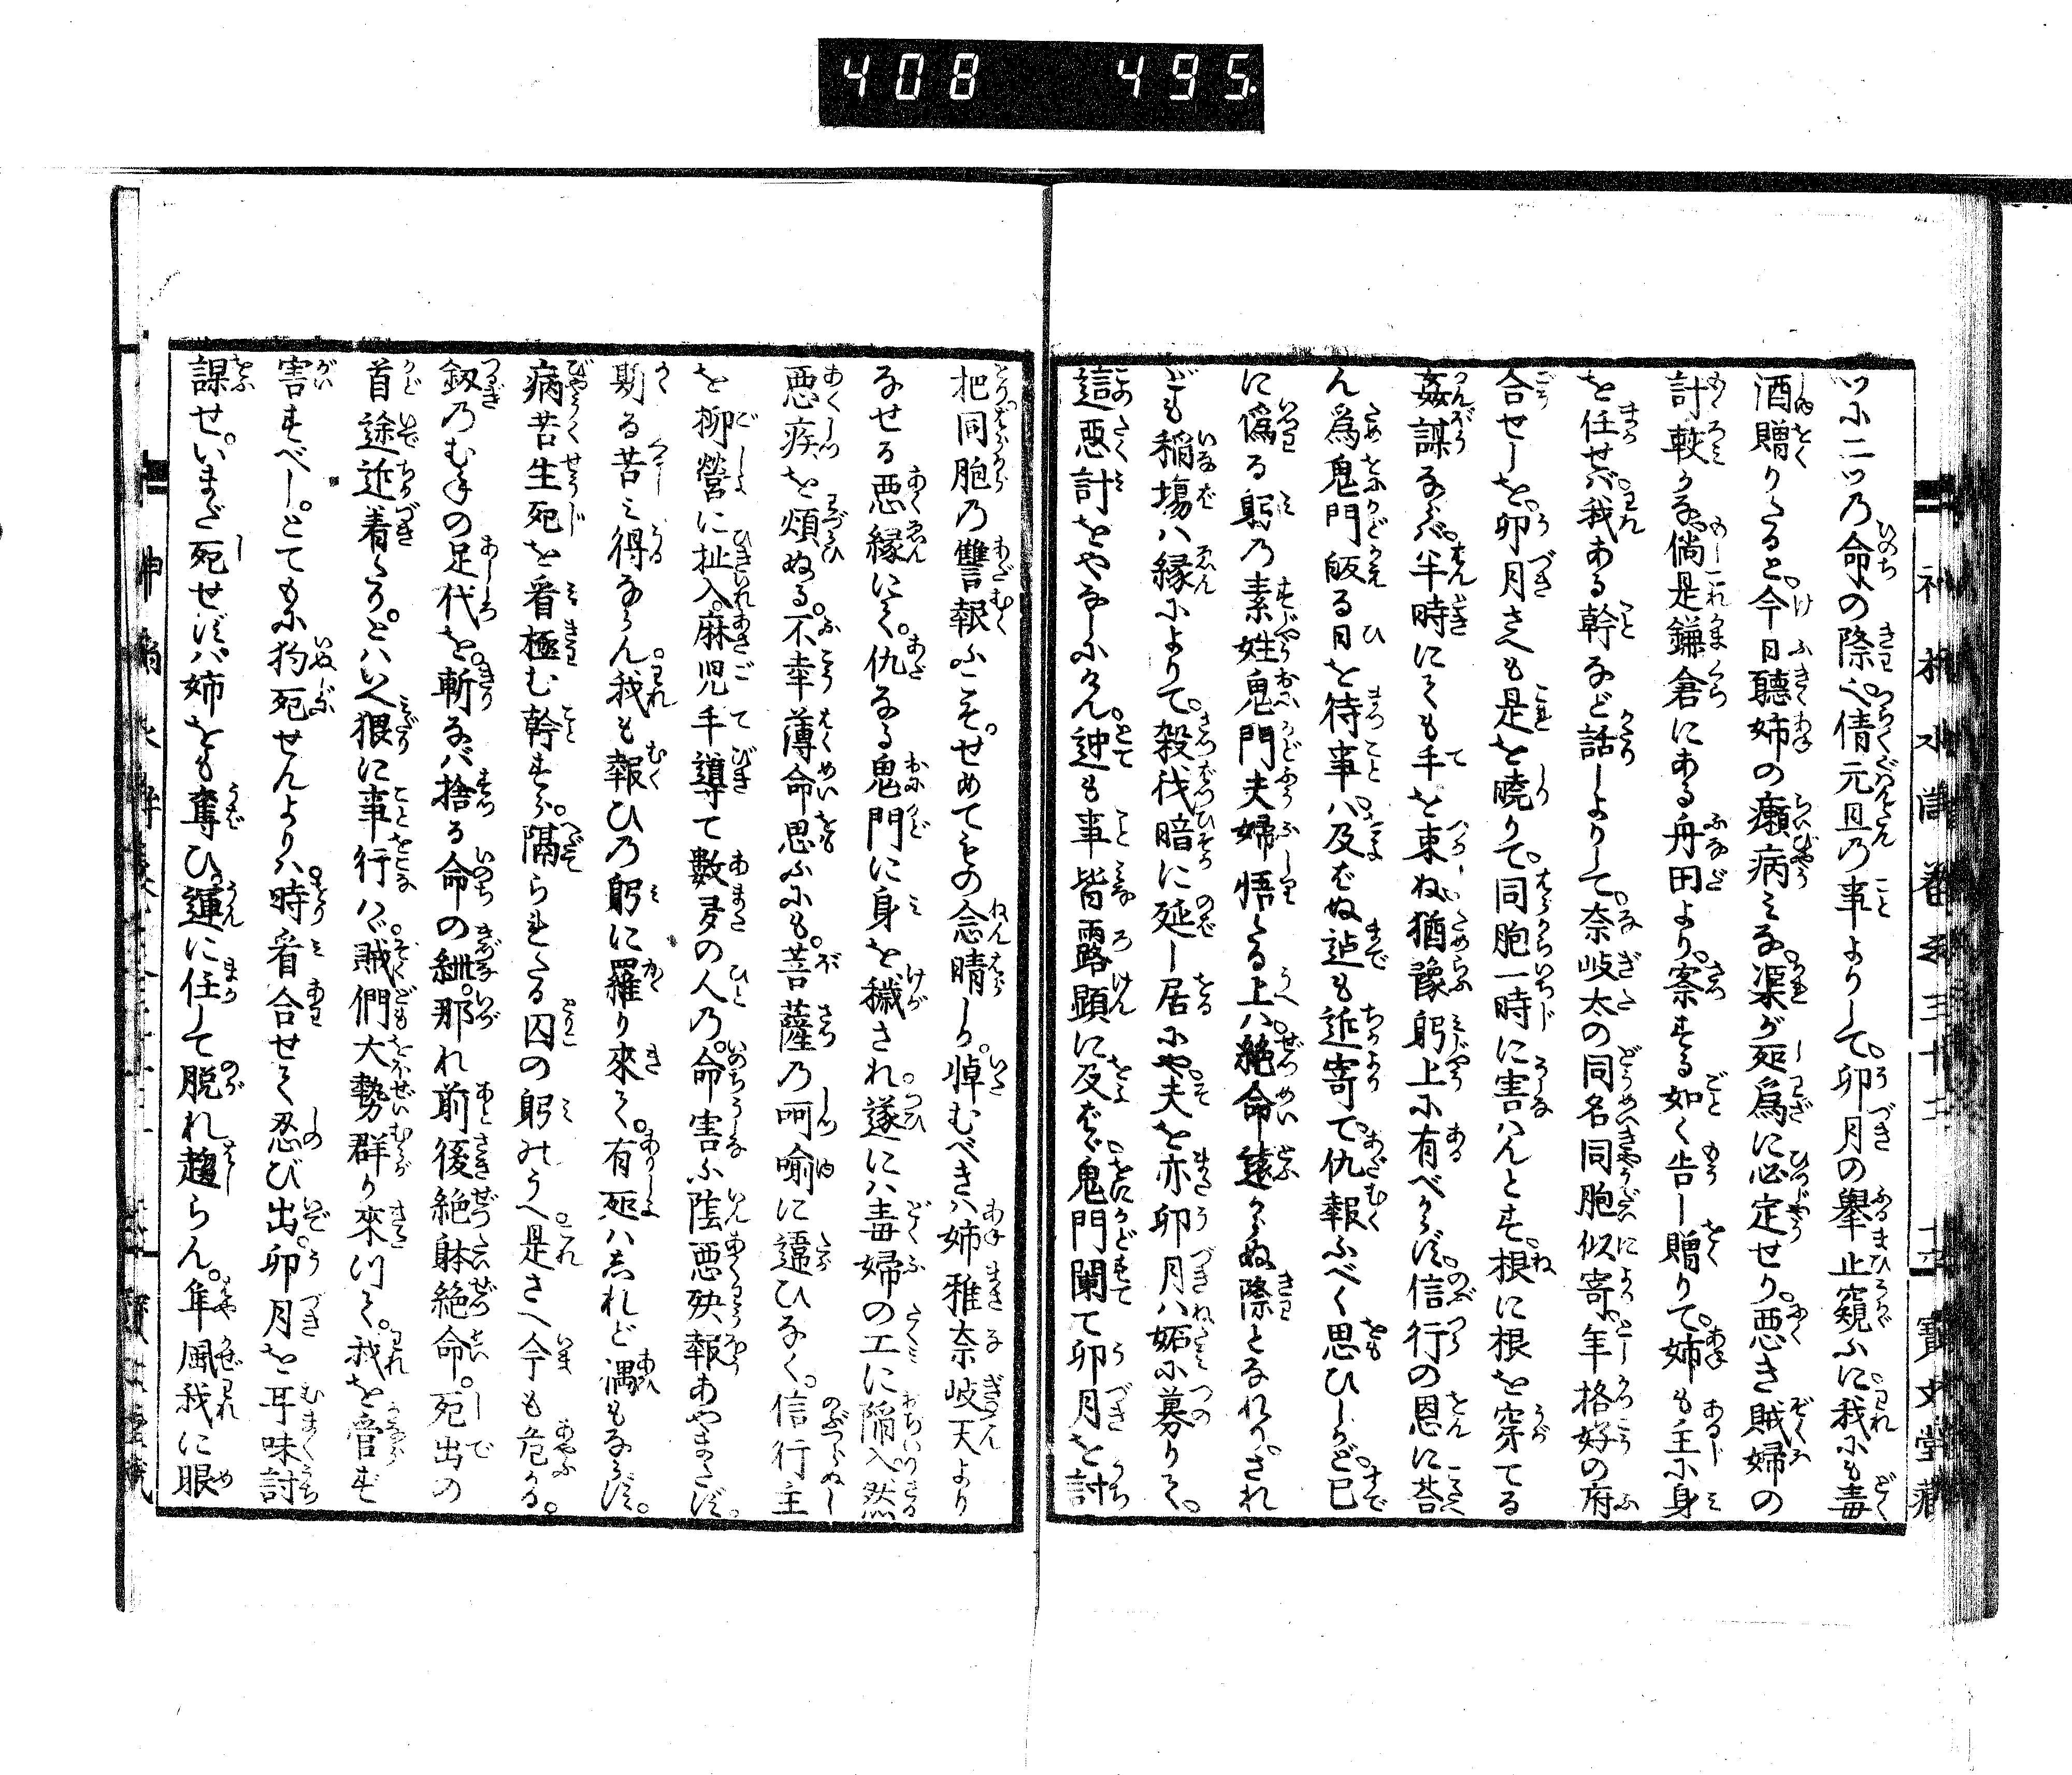 408 495.
ツに二ツの命の際。倩元旦の事よりして。卯月の舉止窺ふに。我にも毒
酒贈りたると。今日聽姉の癩病みな。渠が死為に必定せり。悪き賊婦の
計較かな。倘是鎌倉にある舟田より。案ずる如く告し贈りて。姉も主に身
を任せバ。我ある幹など話しよりして。奈岐太の同名同胞似寄。年格好の府
合せしを。卯月さへも是を暁りて。同胞一時に害ハんとす。根に根を穿てる
姦謀なれバ。半時にても手を束ね猶豫躬上に有べからず。信行の恩に荅
ん為鬼門皈る日を待事ハ。及ばぬ迠も近寄て。仇報ふべく思ひしかど。已
に偽る躬の素姓鬼門夫婦悟たる上ハ。絶命遠からぬ際となれり。され
ども稲塲ハ縁によりて。殺伐暗に延し居にや。夫を亦卯月ハ妬に募りて。
這悪計をやなしにけん。迚も事皆露顕に及ばゞ。鬼門闌て卯月を討
把同胞の讐報にこそ。せめてもの念晴し。悼むべきハ姉雅奈岐天より
なせる悪縁にて。仇なる鬼門に身を穢され。遂にハ毒婦の工に陥入然
悪疾を煩ぬる。不幸薄命思ふにも。菩薩の呵喩に違ひなく。信行主
を柳營に扯入。麻児手導て數多の人の。命害ふ陰悪殃報あやまたず。
斯る苦ミ得ならん。我も報ひの躬に羅り來て。有死ハ志れど遇もならず。
病苦生死を看極む幹すら。隔られたる囚の躬のうへ。是さへ今も危かる。
釼のむねの足代を。斬なバ捨る命の紲。那れ前後絶躰絶命。死出の
首途近着たり。とハいへ猥に事行ハゞ。賊們大勢群り來りて。我を
害すべし。とても狗死せんよりハ。時看合せて忍び出。卯月を耳味討
謀せ。いまだ死せずバ姉をも奪ひ。運に任して脱れ趨らん。隼風我に眼